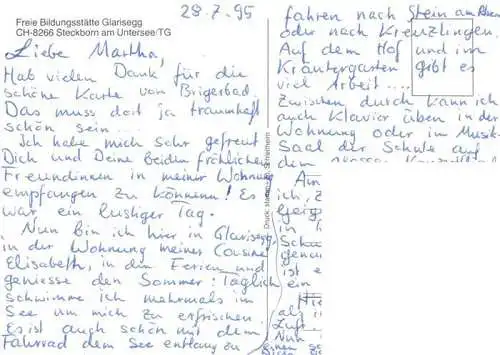 Freie Bildungsstätte Glarisegg
CH-8266 Steckborn am Untersee/TG
28.7.95
Liebe Martha,
Hab vielen Dank für die
schöne Karte von Brigerbad.
Das muss dort ja traumhaft
schön sein...
Ich habe mich sehr gefreut
Dich und Deine beiden fröhlichen
Freundinnen in meiner Wohnung
empfangen zu können! Es
war ein lustiger Tag.
Nun bin ich hier in Glarisegg,
in der Wohnung meiner Cousine
Elisabeth, in den Ferien und
geniesse den Sommer: Täglich
schwimme ich mehrmals im
See um mich zu erfrischen.
Es ist auch schön mit dem
Fahrrad dem See entlang zu
fahren nach Stein am Rhein
oder nach Kreuzlingen.
Auf dem Hof und im
Kräutergarten gibt es
viel Arbeit....
Zwischen durch kann ich
auch Klavier üben in der
Wohnung oder im Musik-
Saal der Schule auf
dem
ich,
in
ist
als
Luft
Nun
einen
Druck: